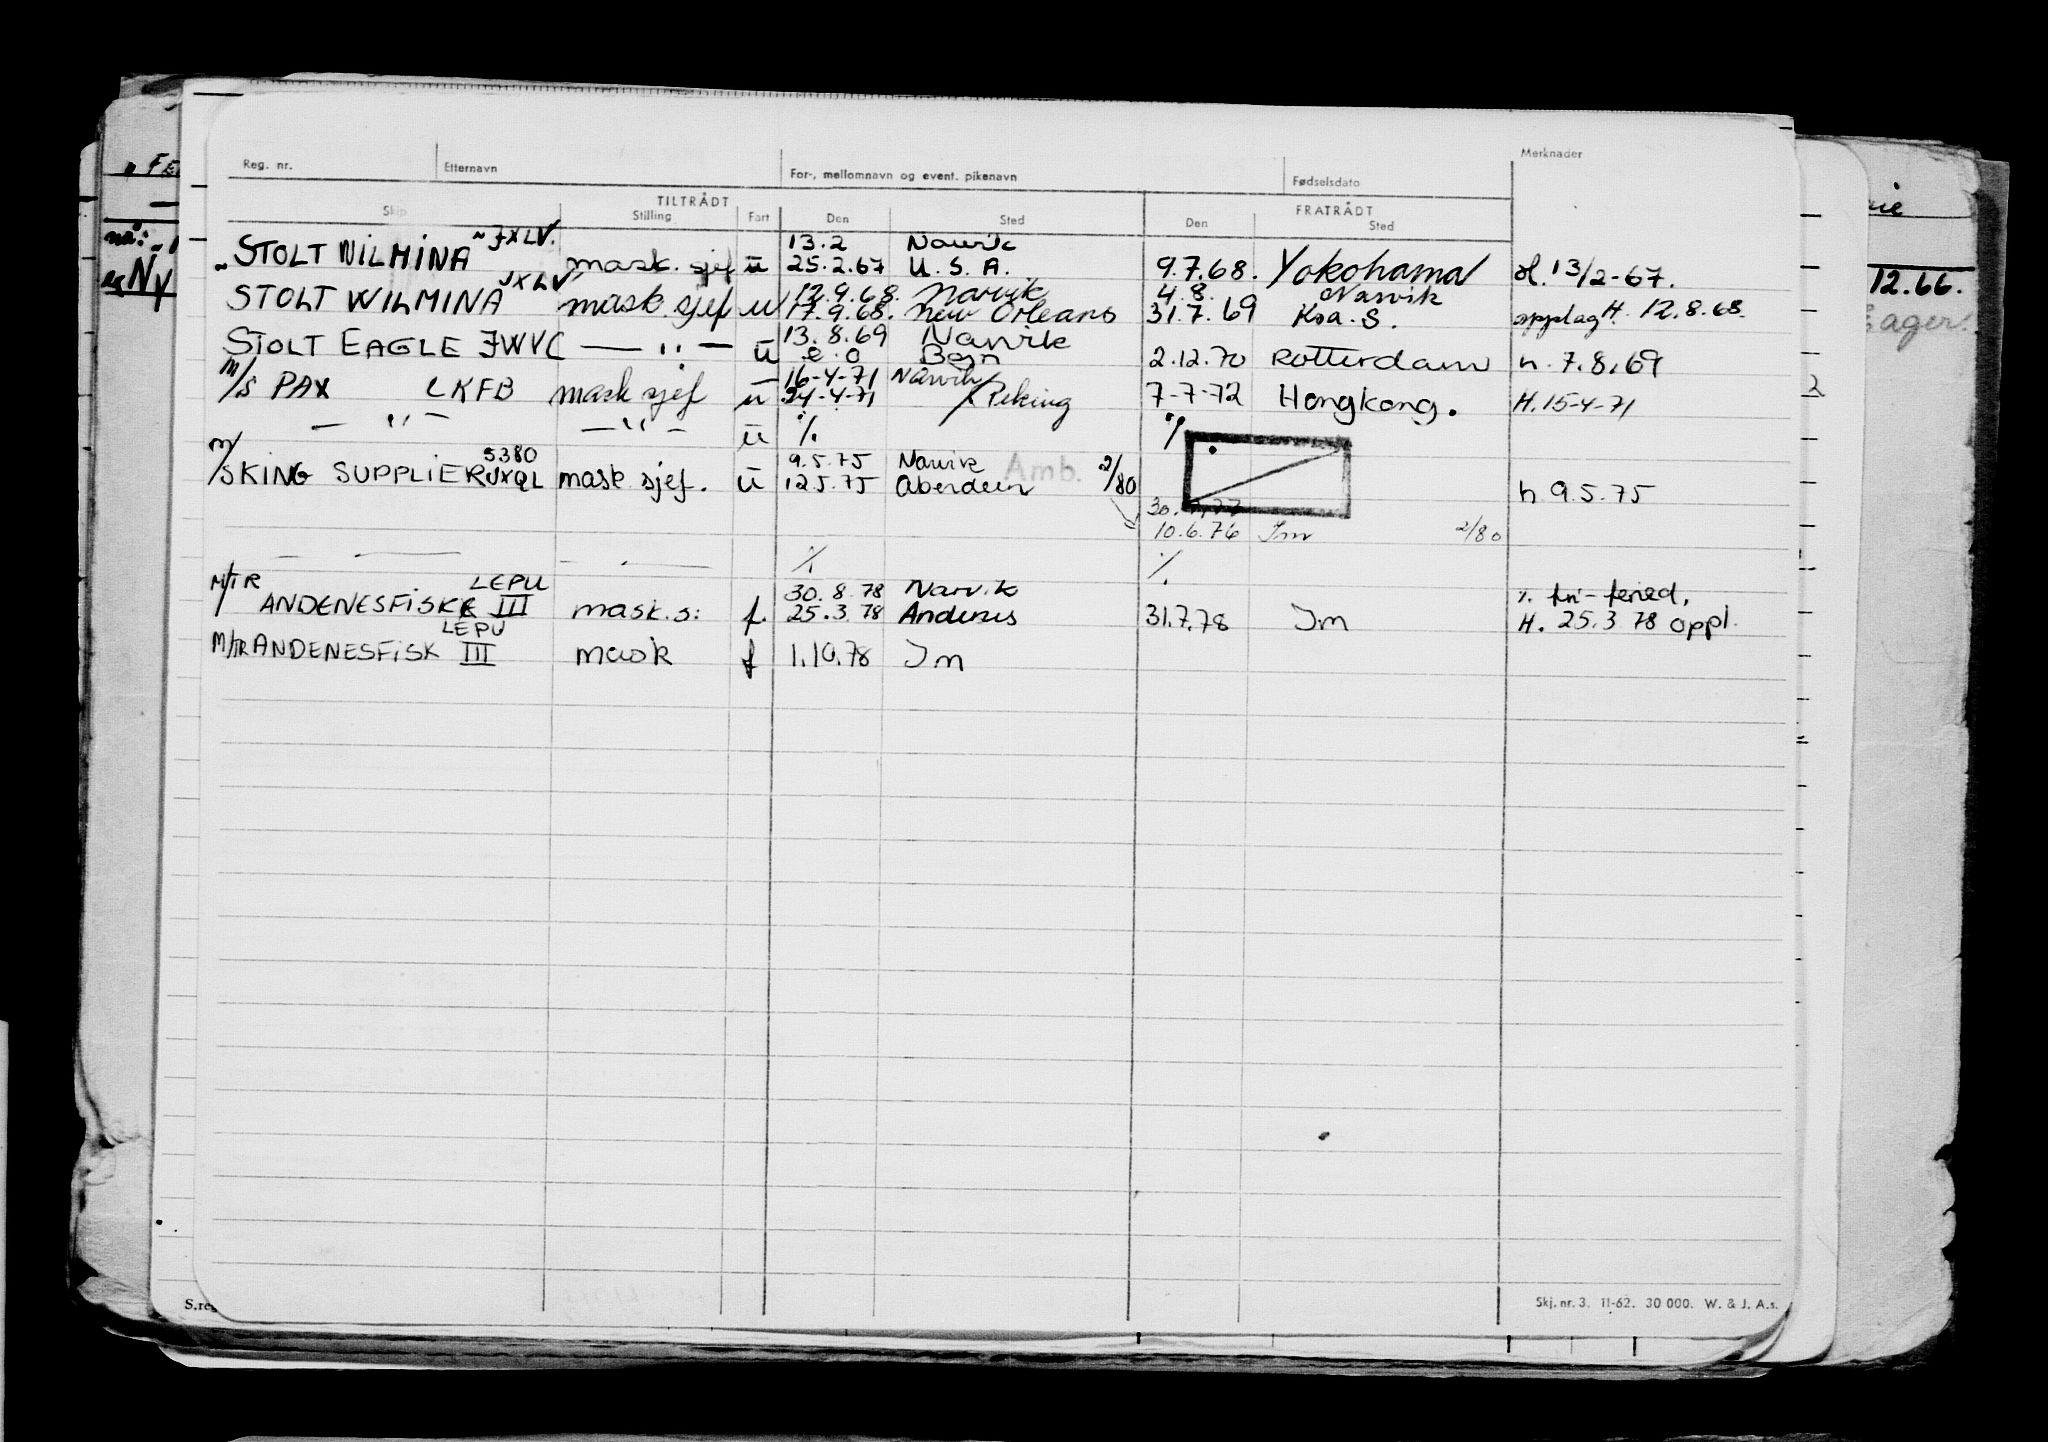 Reg. nr. Etternavn For-, mellomnavn og event. pikenavn Fødselsdato Merknader
TILTRÅDT FRATRÅDT
Skip Stilling Fart Den Sted Den Sted
13.2 Narvik
"STOLT WILMINA" JXLV. mask. sjef u 25.2.67 U.S.A. 9.7.68. Yokohama H. 13/2-67.
12.9.68. Narvik 4.8. Narvik
STOLT WILMINA JXLV mask sjef u 17.9.68. New Orleans 31.7.69 Kra. S. opplag H. 12.8.68.
13.8.69 Narvik
STOLT EAGLE JWVC — " — u e.o Begn 2.12.70 Rotterdam h. 7.8.69
16-4-71 Narvik
M/S PAX LKFB mask sjef u 24-4-71 Peking 7-7-72 Hongkong. H. 15-4-71
— " — — " — u ·/. ·/.
S380 9.5.75 Narvik
M/S KING SUPPLIER JXQL mask sjef. u 12.5.75 Aberdeen Amb. 2/80 h 9.5.75
10.6.76 Im 2/80
— — — — ·/. ·/.
M/TR LEPU 30.8.78 Narvik
ANDENESFISK III mask.s: f. 25.3.78 Andenes 31.7.78 Im H. 25.3 78 oppl.
LEPU
M/TR ANDENESFISK III mask f 1.10.78 Im
12.66.
ager.
Skj. nr. 3. 11-62. 30 000. W. & J. A.s.